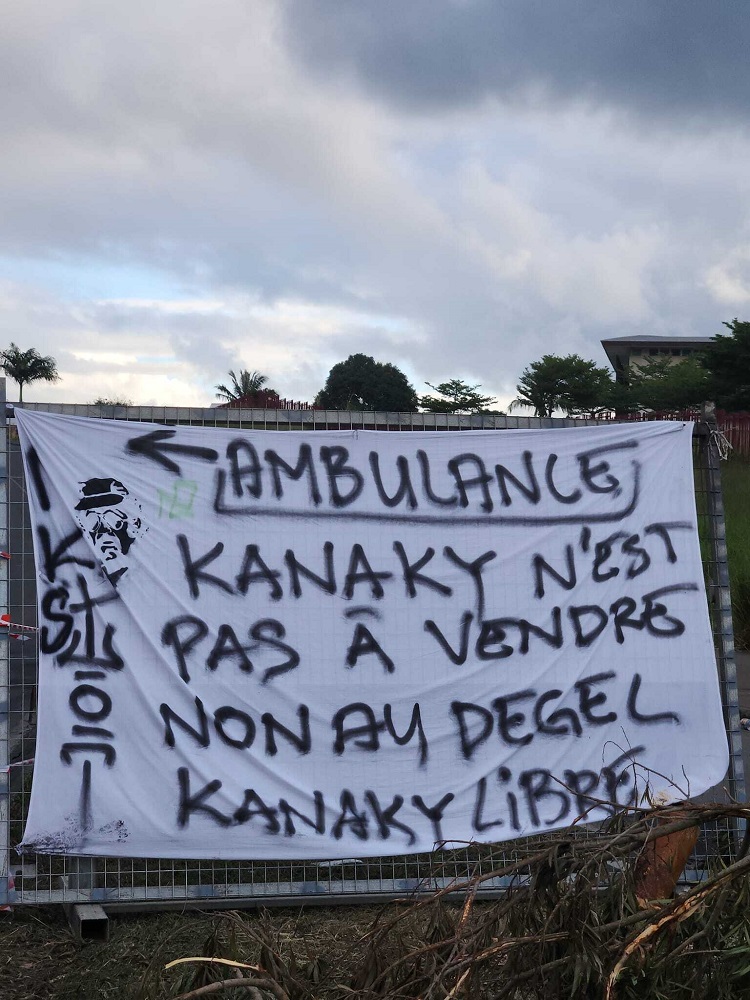 AMBULANCE
KANAKY N'EST
PAS À VENDRE
NON AU DEGEL
KANAKY LiBRE